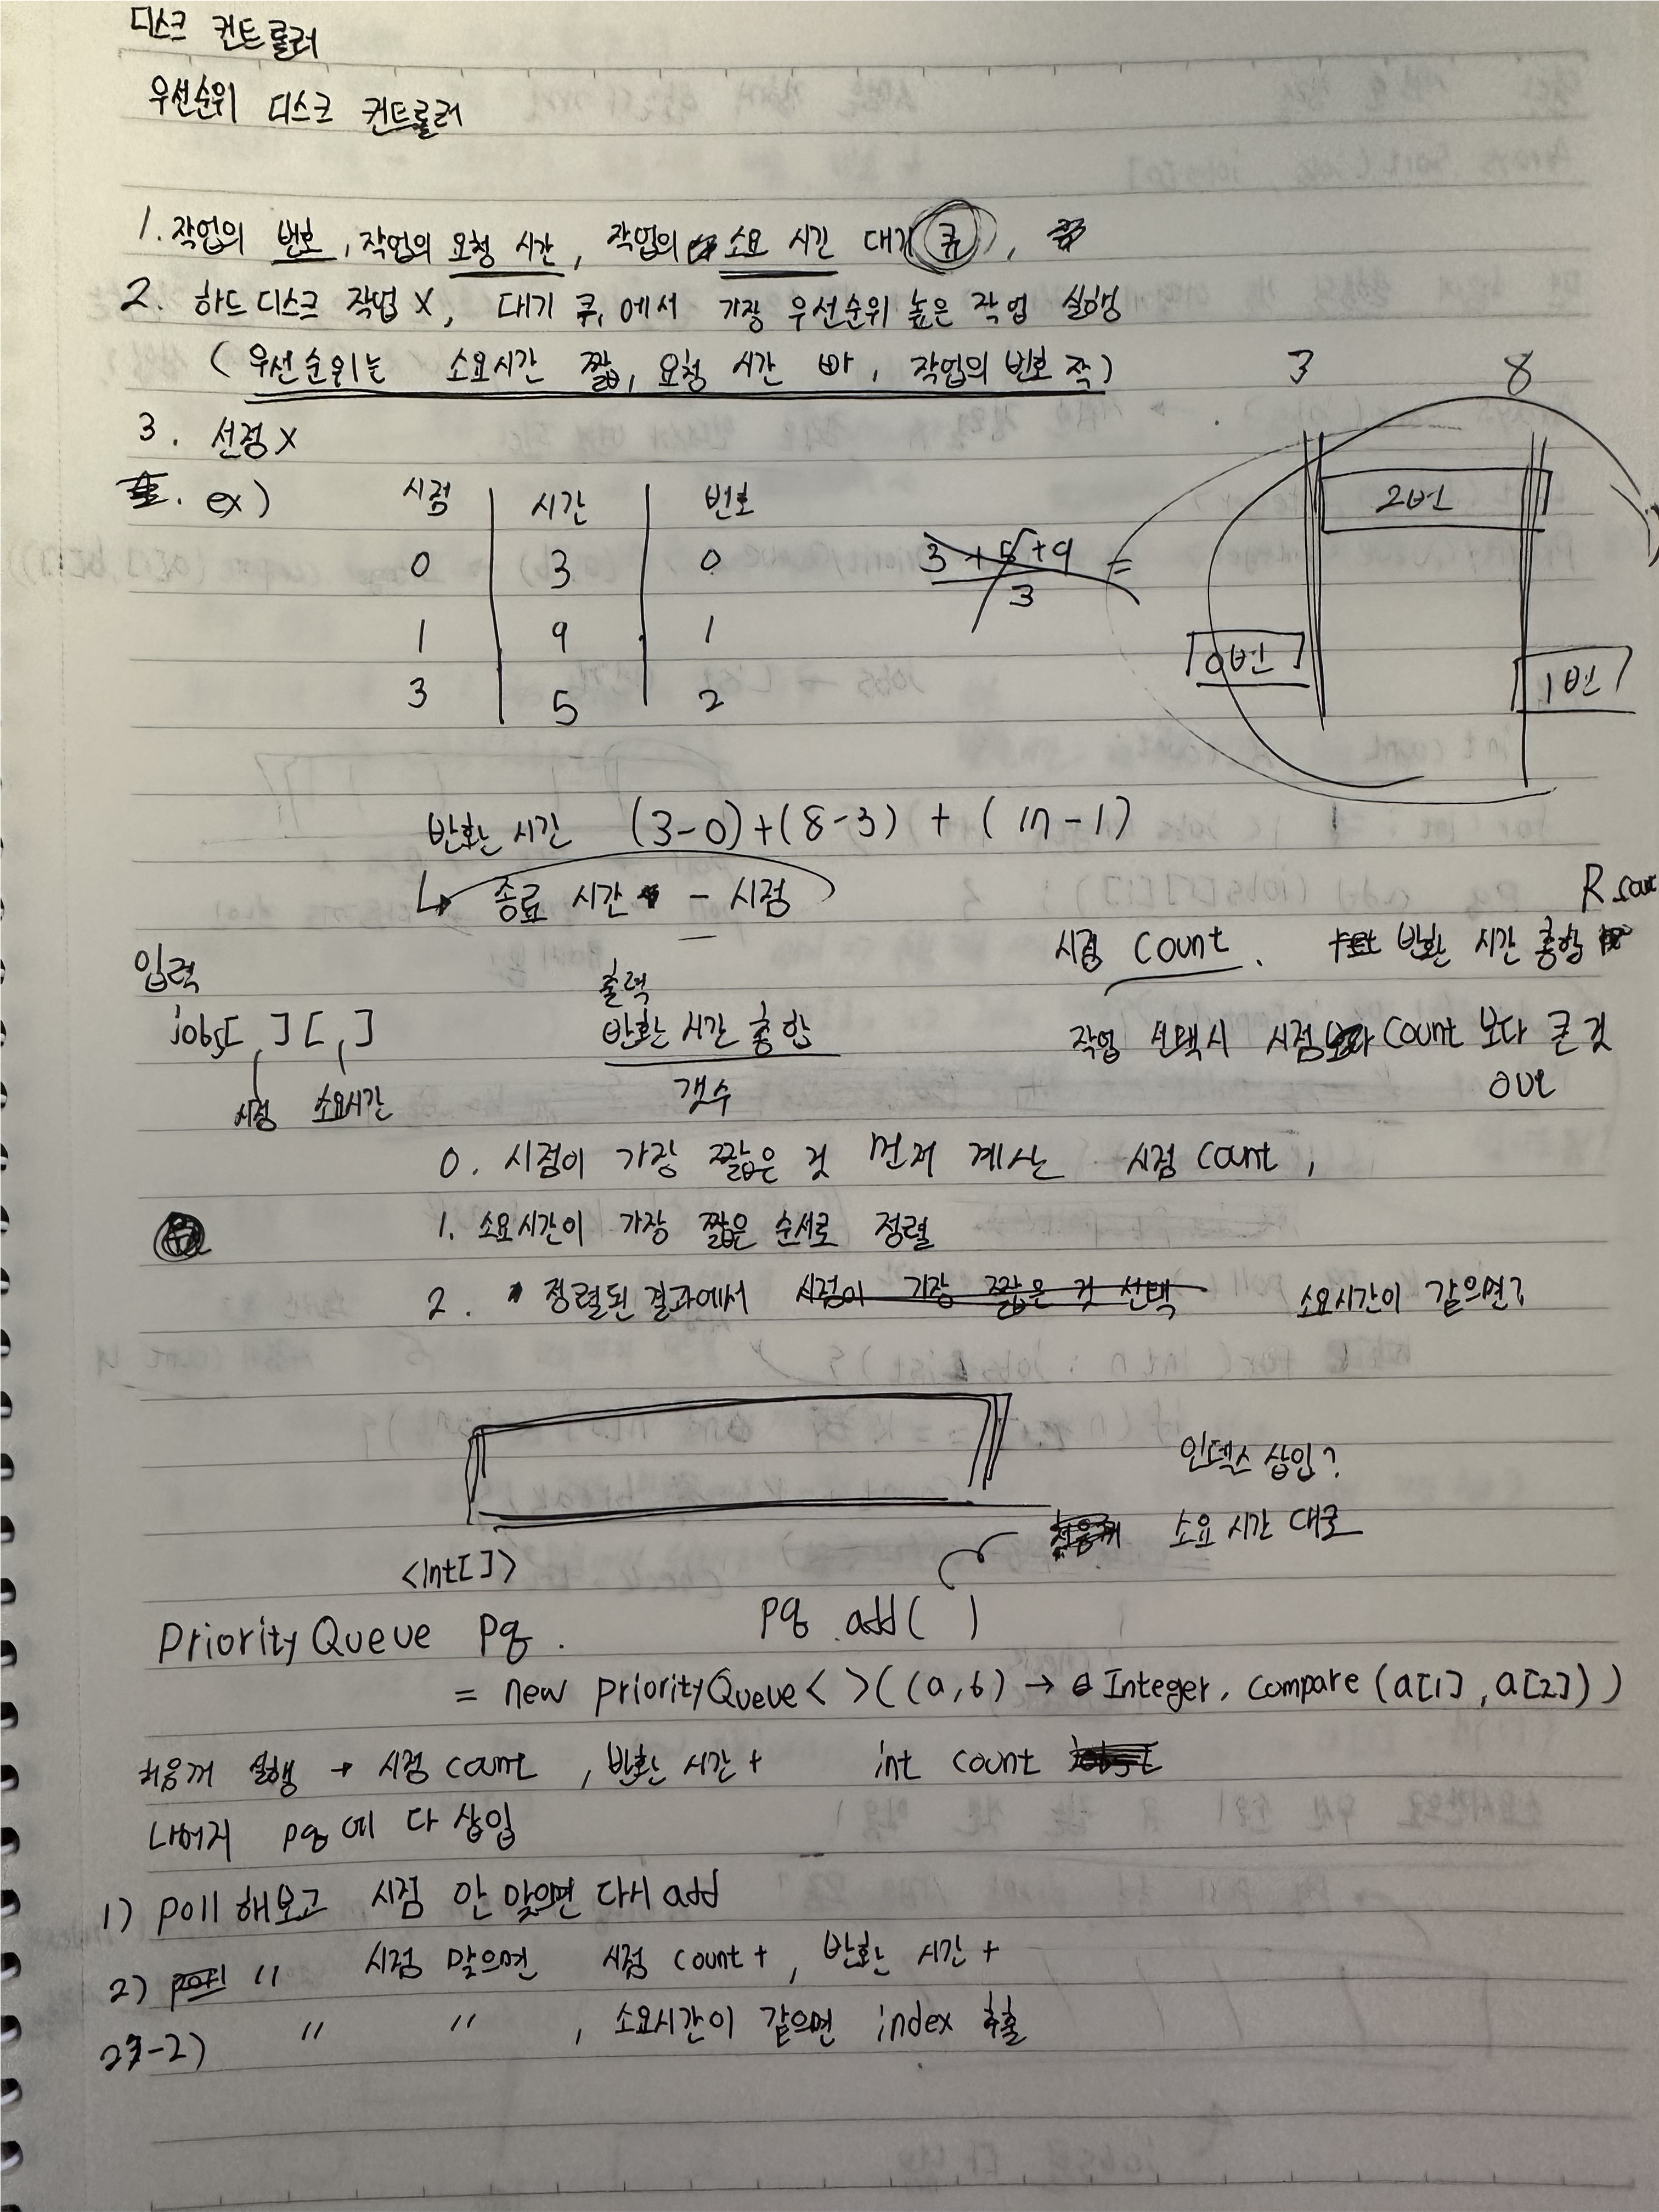 디스크 컨트롤러
우선순위 디스크 컨트롤러
1. 작업의 번호, 작업의 요청 시간, 작업의 소요 시간 대기 큐,
2. 하드디스크 작업 X, 대기 큐에서 가장 우선순위 높은 작업 실행
(우선순위는 소요시간 짧, 요청 시간 빠, 작업의 번호 작)
3 8
3. 선점 X
ex) 시점 시간 번호
2번
0 3 0
3 + 5 + 9 =
3
1 9 1
0번
1번
3 5 2
반환 시간 (3-0)+(8-3) + (17-1)
↳ 종료 시간 - 시점
시점 count. 반환 시간 총합
입력
출력
jobs[,][,]
반환 시간 총합
작업 선택시 시점 count 보다 큰 것
out
시점 소요시간
갯수
0. 시점이 가장 짧은 것 먼저 계산 시점 count,
1. 소요시간이 가장 짧은 순서로 정렬
2. 정렬된 결과에서 시점이 가장 짧은 것 선택 소요시간이 같으면?
인덱스 삽입?
소요 시간 대로
<int[]>
PriorityQueue pq. pq.add( )
= new priorityQueue< >((a,b) → Integer.compare(a[1],a[2]))
처음꺼 실행 → 시점 count, 반환 시간 + int count
나머지 pq에 다 삽입
1) poll 해보고 시점 안 맞으면 다시 add
2) poll 〃 시점 맞으면 시점 count +, 반환 시간 +
2-2) 〃 〃, 소요시간이 같으면 index 추출